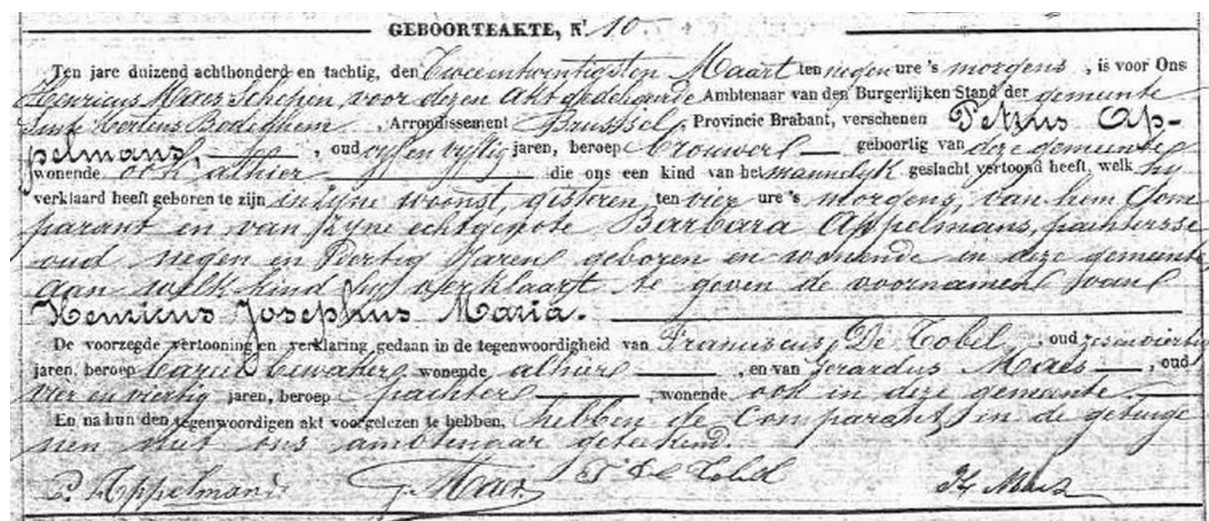 GEBOORTEAKTE, Nr 10.
Ten jare duizend achthonderd en tachtig, den Tweeentwintigsten Maart ten negen ure 's morgens, is voor Ons
Henricus Maes Schepen, voor dezen akt gedelegeerde Ambtenaar van den Burgerlijken Stand der gemeente
Sinte Mertens Bodeghem, Arrondissement Brussel, Provincie Brabant, verschenen Petrus Ap-
pelmans, oud vyf en vyftig jaren, beroep brouwer geboortig van deze gemeente
wonende ook alhier die ons een kind van het mannelyk geslacht vertoond heeft, welk hy
verklaard heeft geboren te zijn in zyne woonst, gisteren, ten vier ure 's morgens, van hem Com
parant en van zyne echtgenote Barbara Appelmans, pachtersse
oud negen en Dertig Jaren geboren en wonende in deze gemeente,
aan welk kind hy verklaart te geven de voornamen van
Henricus Josephus Maria.
De voorzegde vertooning en verklaring gedaan in de tegenwoordigheid van Franciscus De Tobel, oud zesenviertig
jaren, beroep wonende alhier, en van Gerardus Maes, oud
vier en viertig jaren, beroep pachter, wonende ook in deze gemeente.
En na hun den tegenwoordigen akt voorgelezen te hebben, hebben de Comparant en de getuige
nen met ons ambtenaar geteekend.
P. Appelmans G. Maes F De Tobel H. Maes